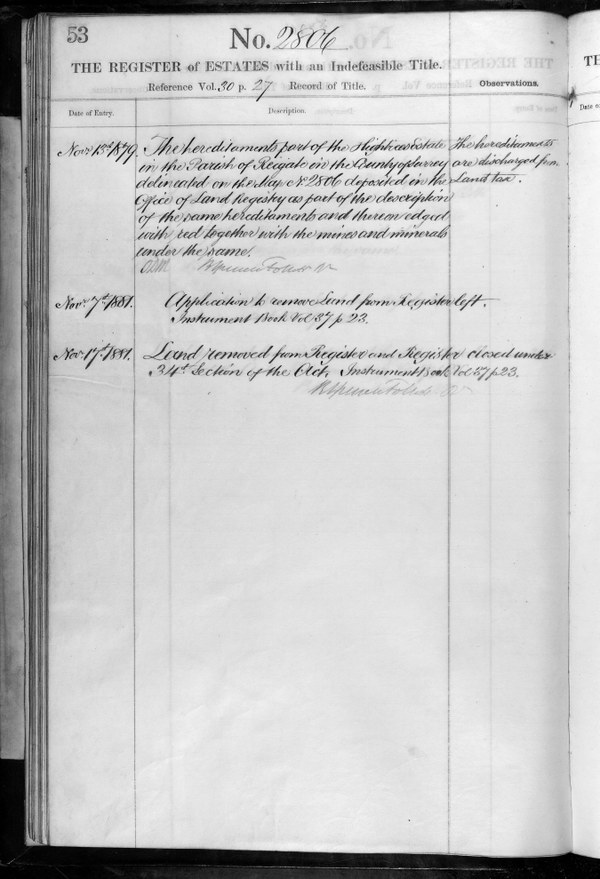 53
No. 2806
THE REGISTER of ESTATES with an Indefeasible Title.
Reference Vol. 30 p. 27 Record of Title.
Observations.
Date of Entry.
Description.
Novr 13th 1879.
The hereditaments part of the Estate
in the Parish of Reigate in the County of Surrey
delineated on the Map No 2806 deposited in the
Office of Land Registry as part of the description
of the same hereditaments and thereon edged
with red together with the mines and minerals
under the same.
The hereditaments
are discharged from
Land tax.
Novr 7th 1881.
Application to remove Land from Register left.
Instrument Book Vol 37 p 23.
Novr 17th 1881.
Land removed from Register and Register closed under
34th Section of the Act. Instrument Book Vol 37 p 23.
TH
Date